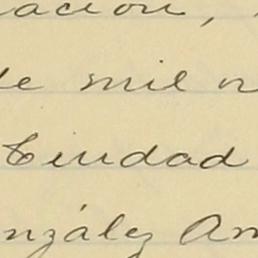 ación,
de mil n
Ciudad
nzález Am